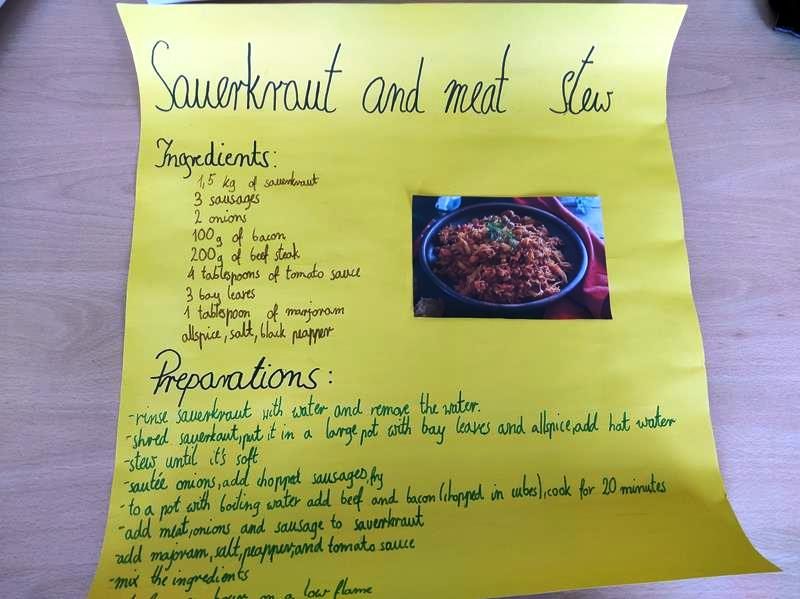 Sauerkraut and meat stew
Ingredients:
1,5 kg of sauerkraut
3 sausages
2 onions
100g of bacon
200g of beef steak
4 tablespoons of tomato sauce
3 bay leaves
1 tablespoon of marjoram
allspice, salt, black peapper
Preparations:
-rinse sauerkraut with water and remove the water.
-shred sauerkaut, put it in a large pot with bay leaves and allspice, add hot water
-stew until it's soft
-sautée onions, add choppet sausages, fry
-to a pot with boiling water add beef and bacon (chopped in cubes), cook for 20 minutes
-add meat, onions and sausage to sauerkraut
-add majoram, salt, peapper, and tomato sauce
-mix the ingredients
on a low flame